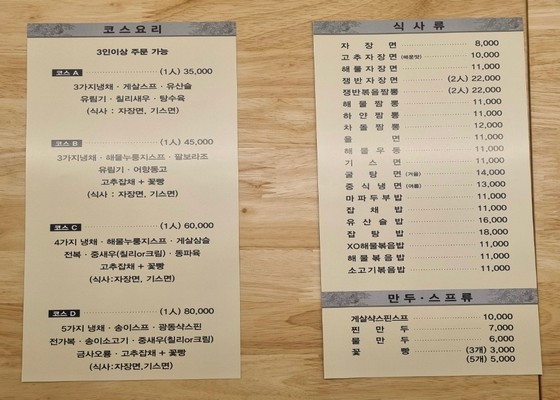 코스요리
3인이상 주문 가능
코스 A (1인) 35,000
3가지냉채 · 게살스프 · 유산슬
유림기 · 칠리새우 · 탕수육
(식사 : 자장면, 기스면)
코스 B (1인) 45,000
3가지냉채 · 해물누룽지스프 · 팔보라조
유림기 · 어향동고
고추잡채 + 꽃빵
(식사 : 자장면, 기스면)
코스 C (1인) 60,000
4가지 냉채 · 해물누룽지스프 · 게살삼슬
전복 · 중새우(칠리or크림) · 동파육
고추잡채 + 꽃빵
(식사:자장면,기스면)
코스 D (1인) 80,000
5가지 냉채 · 송이스프 · 광동샥스핀
전가복 · 송이소고기 · 중새우(칠리or크림)
금사오룡 · 고추잡채 + 꽃빵
(식사:자장면,기스면)
식사류
자장면 8,000
고추자장면(매운맛) 10,000
해물자장면 11,000
쟁반자장면 (2인) 22,000
쟁반볶음짬뽕 (2인) 22,000
해물짬뽕 11,000
하얀짬뽕 11,000
차돌짬뽕 12,000
울면 11,000
해물우동 11,000
기스면 11,000
굴탕면(겨울) 14,000
중식냉면(여름) 13,000
마파두부밥 11,000
잡채밥 11,000
유산슬밥 16,000
잡탕밥 18,000
XO해물볶음밥 11,000
해물볶음밥 11,000
소고기볶음밥 11,000
만두·스프류
게살샥스핀스프 10,000
찐만두 7,000
물만두 6,000
꽃빵 (3개) 3,000
(5개) 5,000